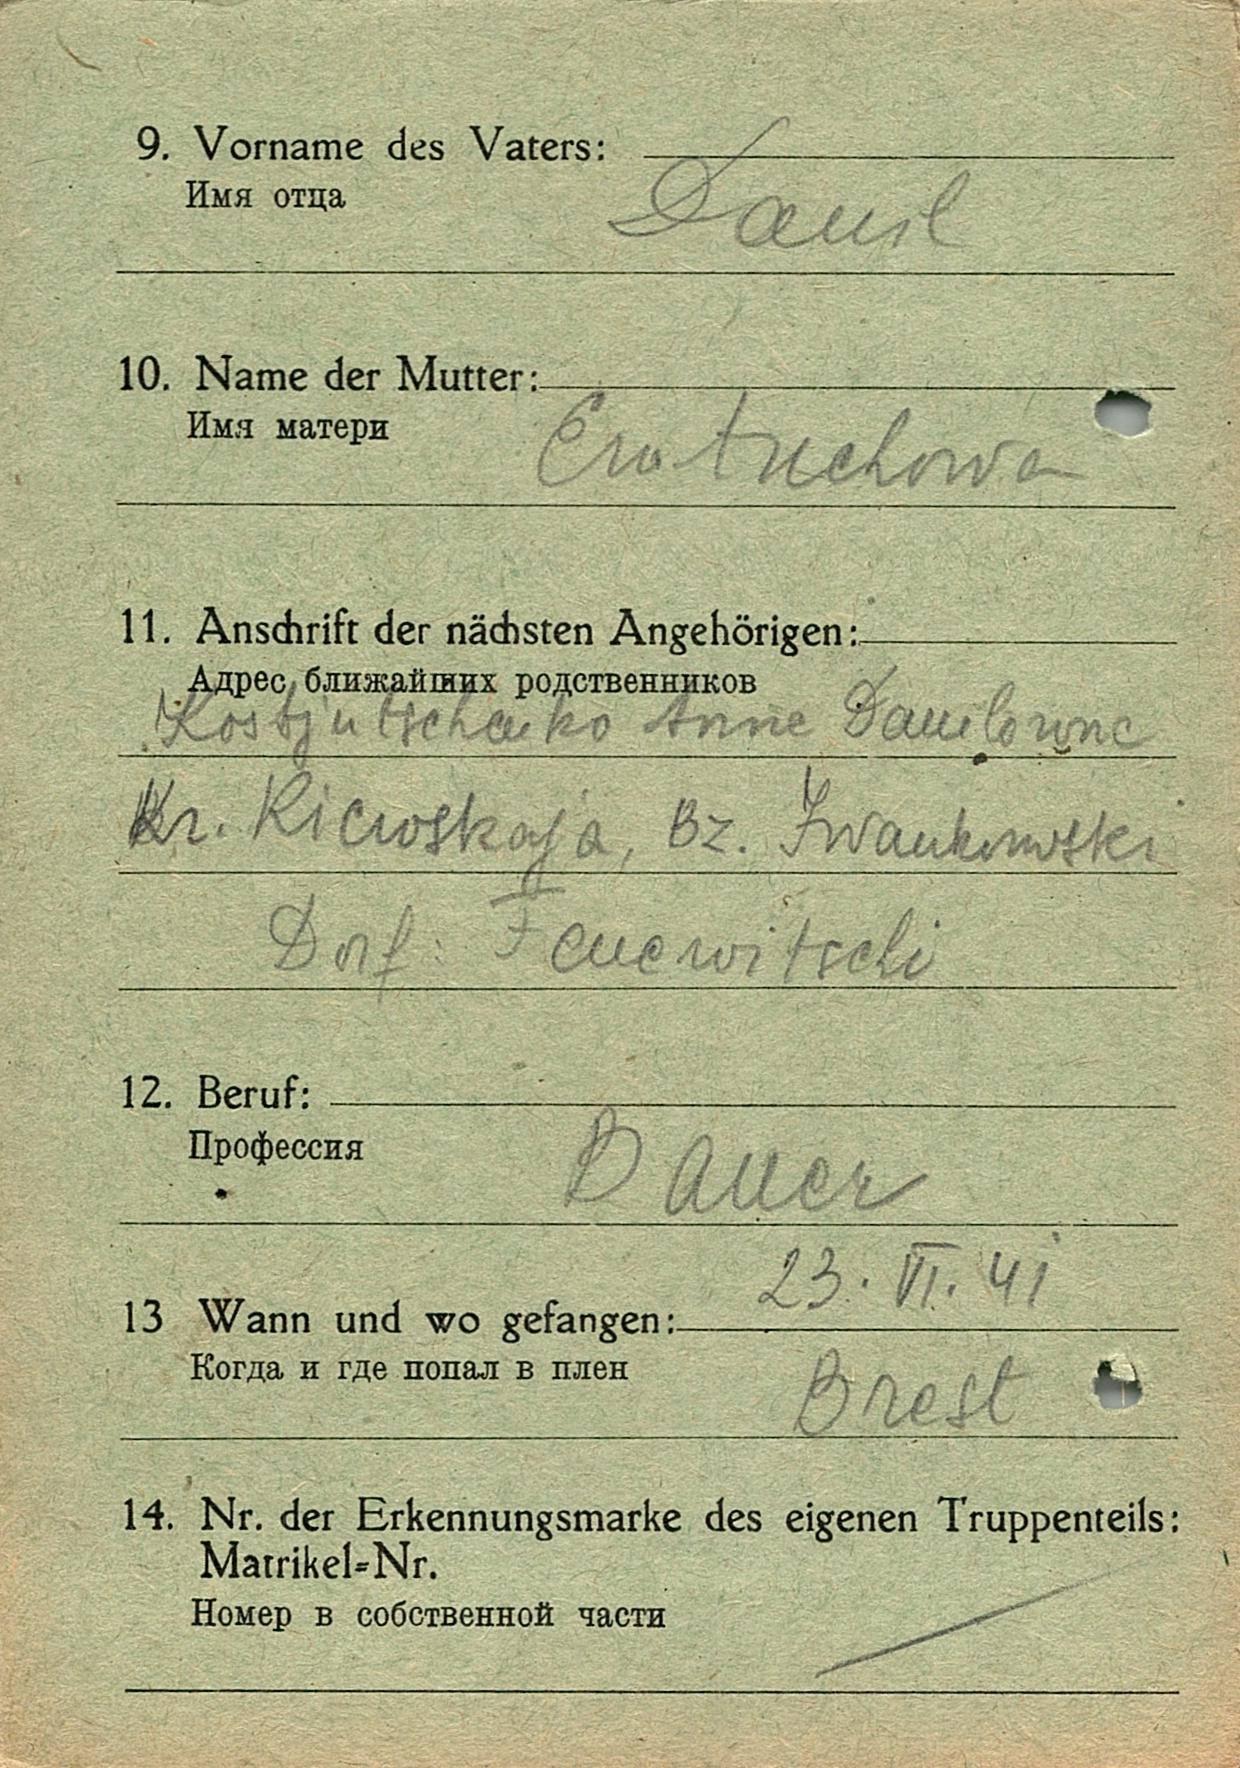 9. Vorname des Vaters:
Имя отца
Danil
10. Name der Mutter:
Имя матери
11. Anschrift der nächsten Angehörigen:
Адрес ближайших родственников
Kostjutschenko Anne Danilowna
Kr. Kiewskaja, Bz. Iwankowski
Dorf:
12. Beruf:
Профессия
Bauer
23. VI. 41
13 Wann und wo gefangen:
Когда и где попал в плен
Brest
14. Nr. der Erkennungsmarke des eigenen Truppenteils:
Matrikel-Nr.
Номер в собственной части